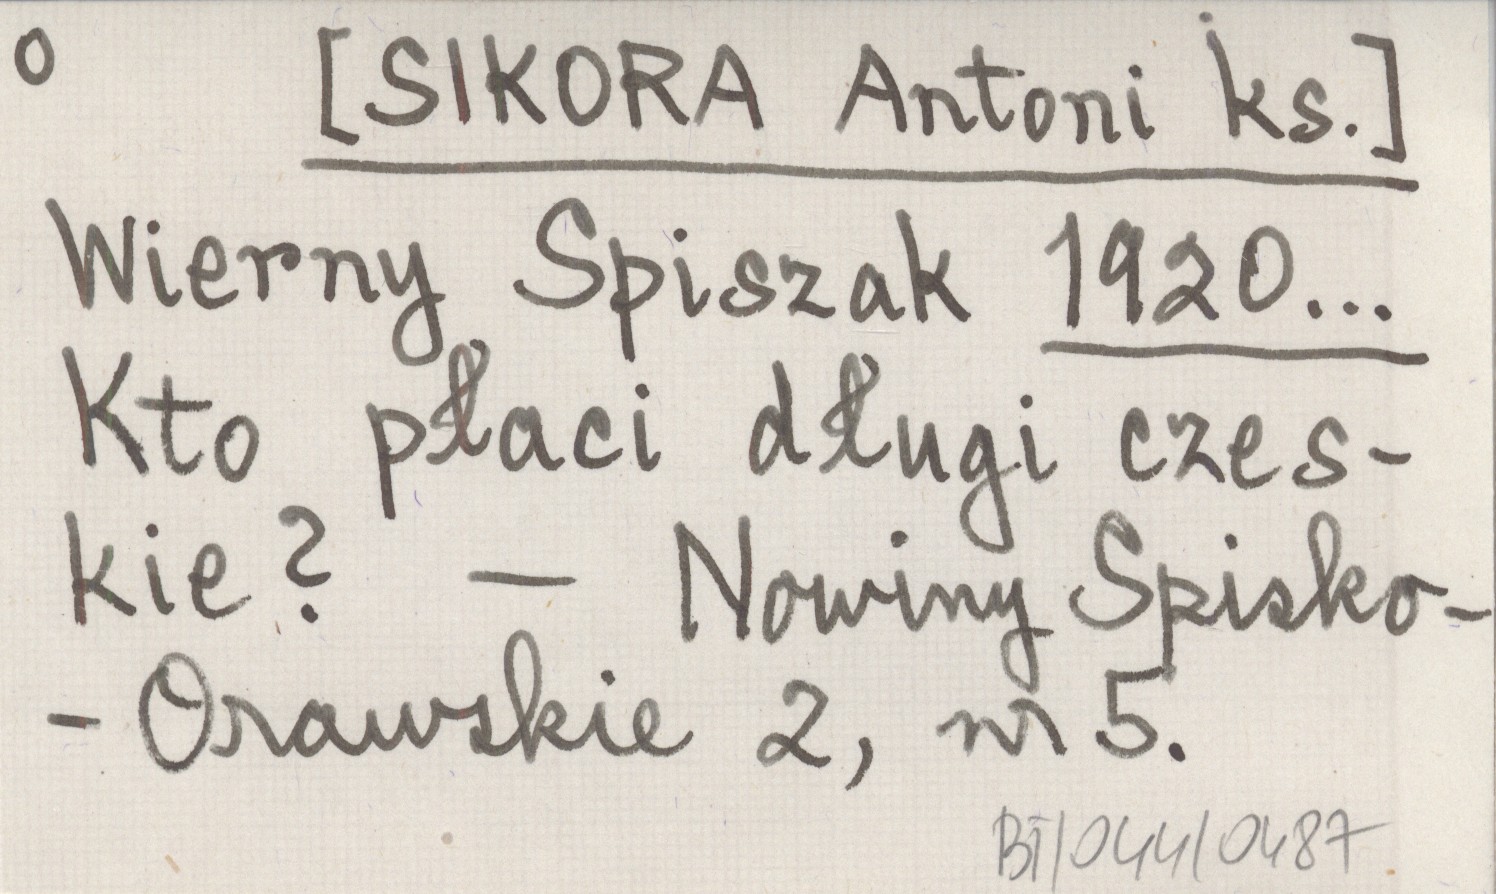 o [SIKORA Antoni ks.]
Wierny Spiszak 1920...
Kto płaci długi czes-
kie? — Nowiny Spisko-
- Orawskie 2, nr 5.
BT/044/0487